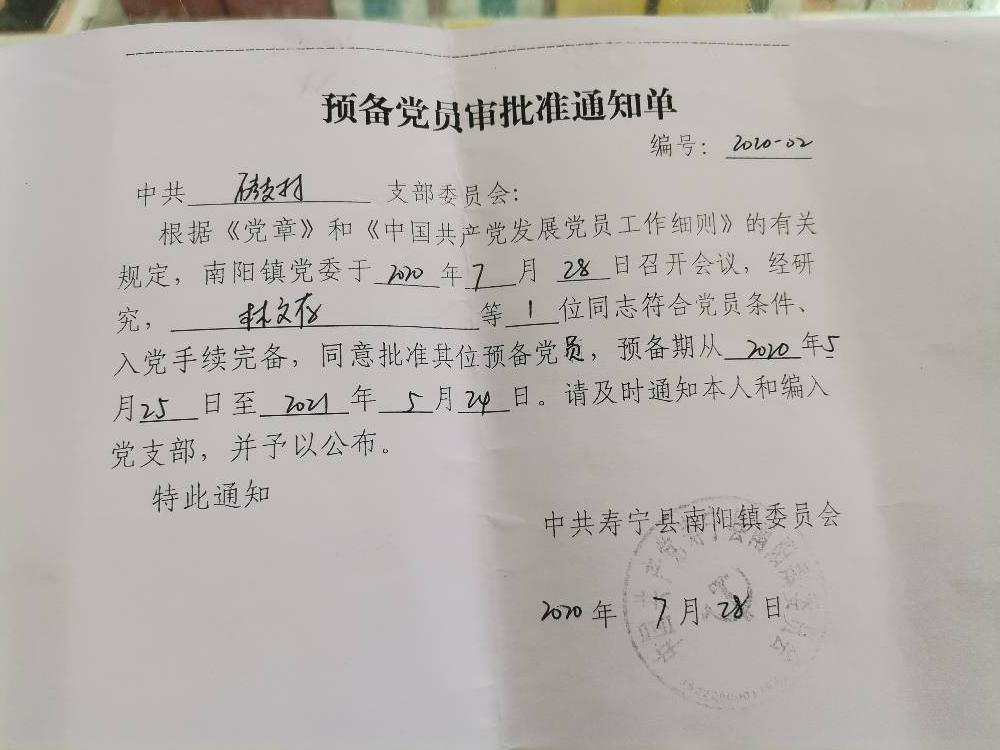 预备党员审批准通知单
编号：2020-02
中共 支部委员会：
根据《党章》和《中国共产党发展党员工作细则》的有关
规定，南阳镇党委于2020年7月28日召开会议，经研
究，林文存等1位同志符合党员条件、
入党手续完备，同意批准其位预备党员，预备期从2020年5
月25日至2021年5月24日。请及时通知本人和编入
党支部，并予以公布。
特此通知
中共寿宁县南阳镇委员会
2020年7月28日
中国共产党寿宁县南阳镇委员会